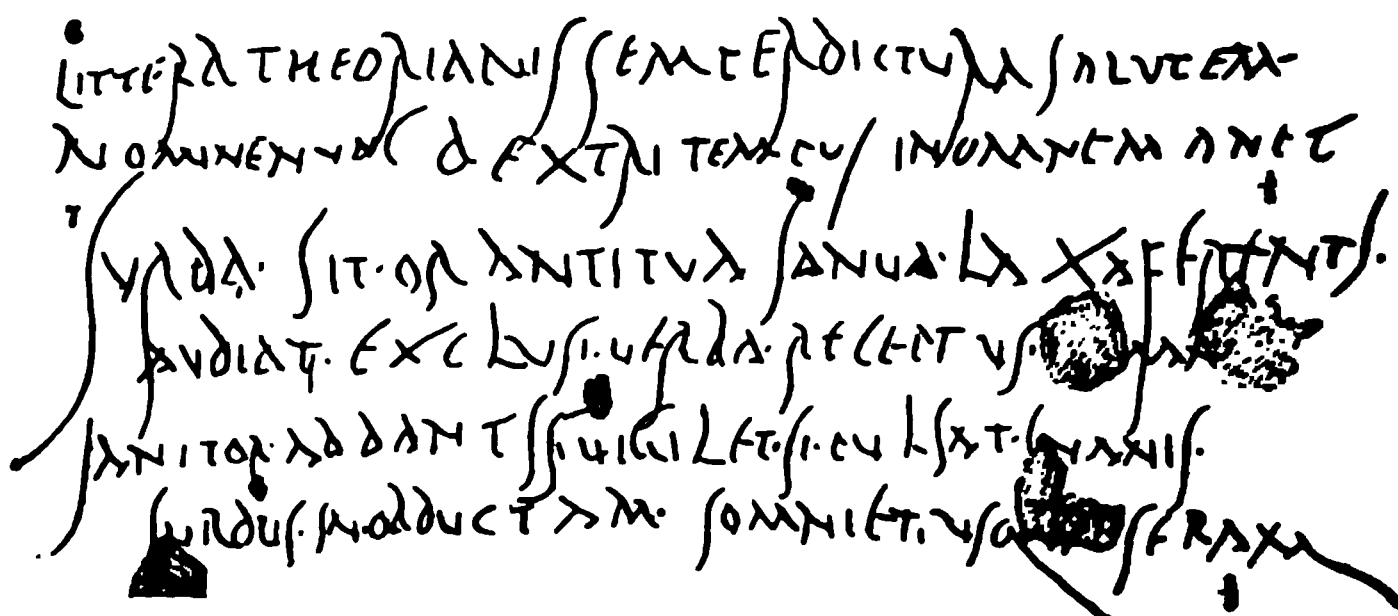 LITTERA THEORIANIS SEMPER DICTVRA SALVTEM
NOMINE NVNC DEXTRI TEMPVS IN OMNE MANET
SVRDA·SIT·ORANTI TVA IANVA·LAXA FERENTI·
AVDIAT·EXCLVSI·VERBA·RECEPTVS· AMA
IANITOR·AD DANTIS VIGILET·SI·PVLSAT·INANIS·
SVRDVS·IN·OBDVCTAM·SOMNIET·VSQVE SERAM